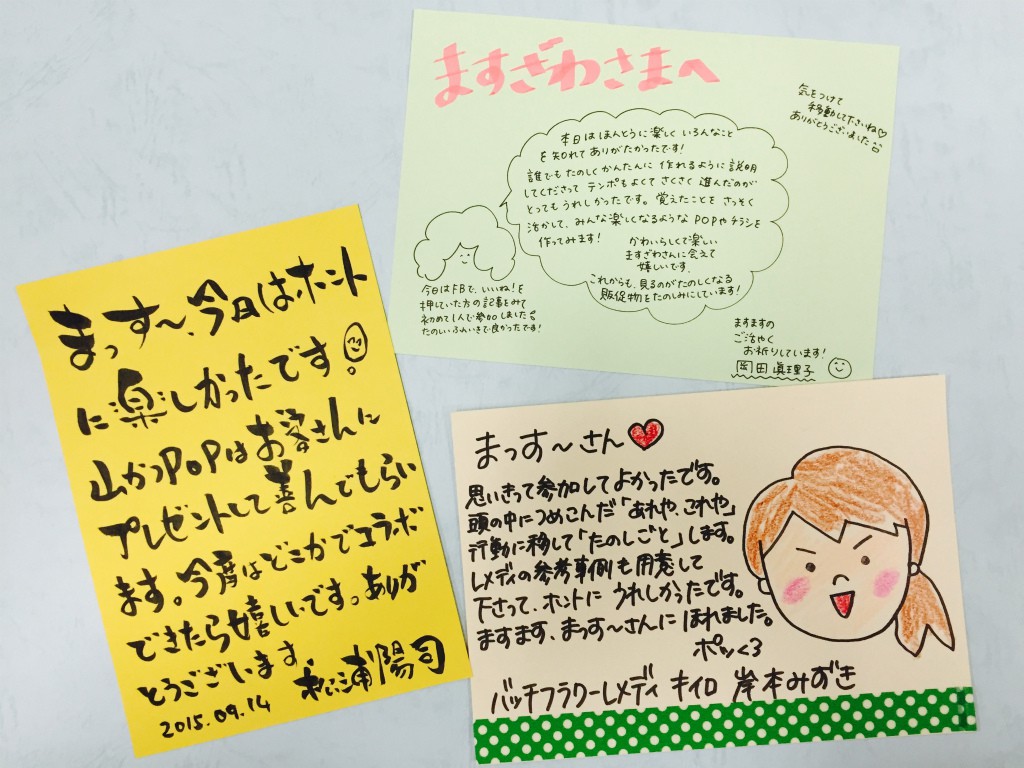 まっす〜、今日はホント
に楽しかったです。
山かつPOPはお客さんに
プレゼントして喜んでもらい
ます。今度はどこかでコラボ
できたら嬉しいです。ありが
とうございます
松浦陽司
2015.09.14
ますざわさまへ
気をつけて
移動して下さいね♡
ありがとうございました
本日はほんとうに楽しく いろんなこと
を知れて ありがたかったです!
誰でも たのしく かんたんに 作れるように 説明
してくださって テンポもよくて さくさく 進んだのが
とっても うれしかったです。覚えたことを さっそく
活かして、みんな楽しくなるような POPや チラシを
作ってみます!
かわいらしくて楽しい
ますざわさんに会えて
嬉しいです。
これからも、見るのがたのしくなる
販促物をたのしみにしています!
今日はFBで、いいね!を
押していた方の記事をみて
初めて1人で参加しました
たのしいふんいきで良かったです!
ますますの
ご活やく
お祈りしています!
岡田 眞理子
まっす〜さん♥
思いきって参加してよかったです。
頭の中につめこんだ「あれや、これや」
行動に移して「たのしごと」します。
レメディの参考事例も用意して
下さって、ホントに うれしかったです。
ますます、まっす〜さんに ほれました。
ポッ<3
バッチフラワーレメディ キイロ 岸本みずき